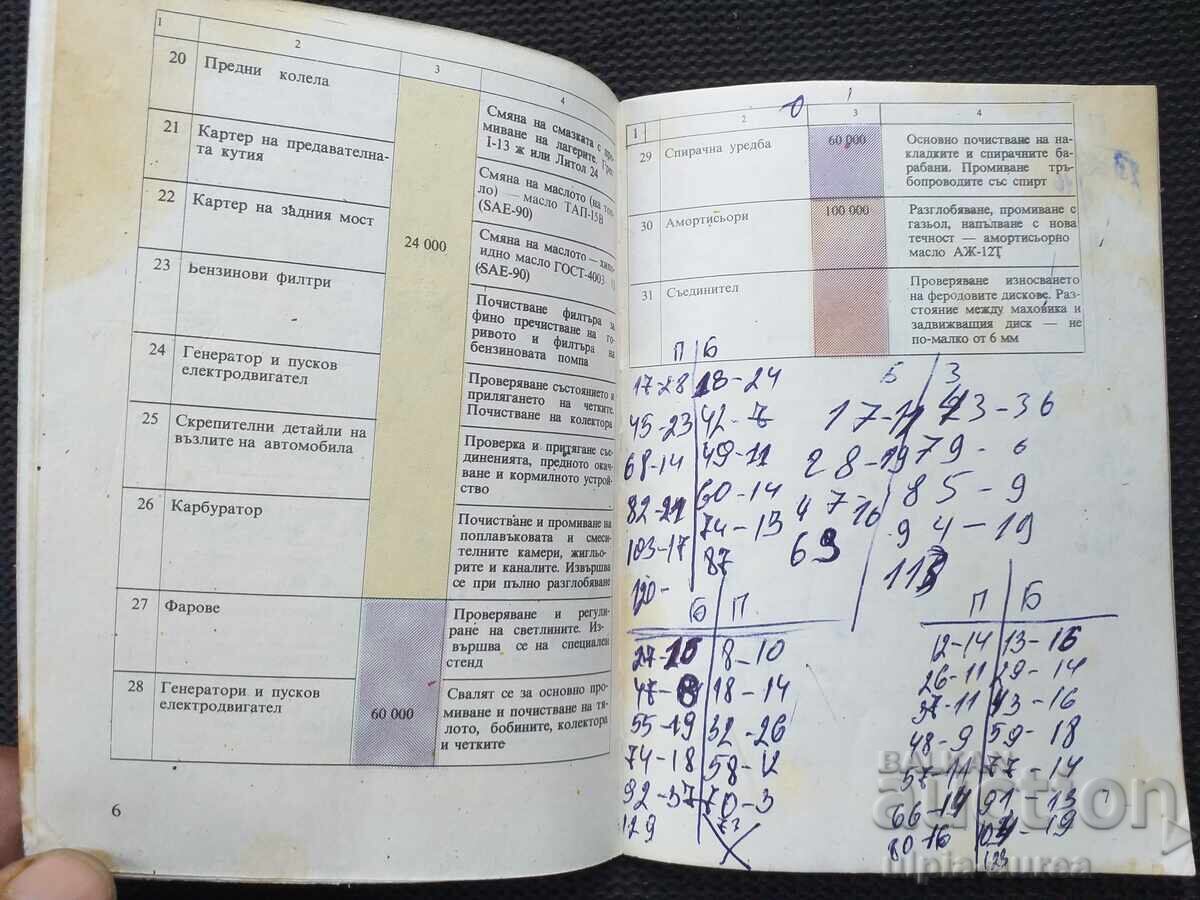 1 2 3 4
20 Предни колела
Смяна на смазката с про-
миване на лагерите. Грес
I-13 ж или Литол 24
21 Картер на предавателна-
та кутия
Смяна на маслото (на топ-
ло) — масло ТАП-15В
(SAE-90)
22 Картер на задния мост
24 000
Смяна на маслото — хипо-
идно масло ГОСТ-4003
(SAE-90)
23 Бензинови филтри
Почистване филтъра за
фино пречистване на го-
ривото и филтъра на
бензиновата помпа
24 Генератор и пусков
електродвигател
Проверяване състоянието и
прилягането на четките.
Почистване на колектора
25 Скрепителни детайли на
възлите на автомобила
Проверка и притягане съе-
диненията, предното окач-
ване и кормилното устрой-
ство
26 Карбуратор
Почистване и промиване на
поплавъковата и смеси-
телните камери, жигльо-
рите и каналите. Извършва
се при пълно разглобяване
27 Фарове
Проверяване и регули-
ране на светлините. Из-
вършва се на специален
стенд
28 Генератори и пусков
електродвигател
60 000
Свалят се за основно про-
миване и почистване на тя-
лото, бобините, колектора
и четките
6
1 2 3 4
29 Спирачна уредба
60 000
Основно почистване на на-
кладките и спирачните ба-
рабани. Промиване тръ-
бопроводите със спирт
30 Амортисьори
100 000
Разглобяване, промиване с
газьол, напълване с нова
течност — амортисьорно
масло АЖ-12Т
31 Съединител
Проверяване износването
на феродовите дискове. Раз-
стояние между маховика и
задвижващия диск — не
по-малко от 6 мм
П Б
17-28 18-24
45-23 42-7
68-14 49-11
82-21 60-14
103-17 74-13
120- 87
Б З
17-11 43-36
28-19 79-6
47-16 85-9
63 94-19
113
Б П
27-20 8-10
47- 18-14
55-19 32-26
74-18 58-12
92-37 70-3
129 73
П Б
12-14 13-16
26-11 29-14
37-11 43-16
48-9 59-18
57-14 77-14
66-14 91-13
80-16 104-19
123
BALKAN
auction
ulpia-aurea